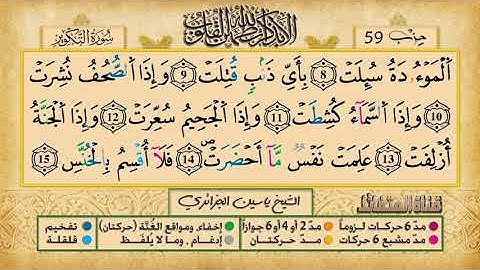 حزب 59
ألا بذكر الله تطمئن القلوب
سورة التكوير
الْمَوْءُۥدَةُ سُئِلَتْ 8 بِأَىِّ ذَنۢبٍ قُتِلَتْ 9 وَإِذَا الصُّحُفُ نُشِرَتْ
10 وَإِذَا السَّمَآءُ كُشِطَتْ 11 وَإِذَا الْجَحِيمُ سُعِّرَتْ 12 وَإِذَا الْجَنَّةُ
أُزْلِفَتْ 13 عَلِمَتْ نَفْسٌ مَّآ أَحْضَرَتْ 14 فَلَآ أُقْسِمُ بِالْخُنَّسِ 15
الشيخ ياسين الجزائري
مدّ 6 حركات لزوماً مدّ 2 أو 4 أو 6 جوازاً إخفاء، ومواقع الغُنَّة (حركتان) تفخيم
مدّ مشبع 6 حركات مدّ حركتان إدغام، وما لا يُلفَظ قلقلة